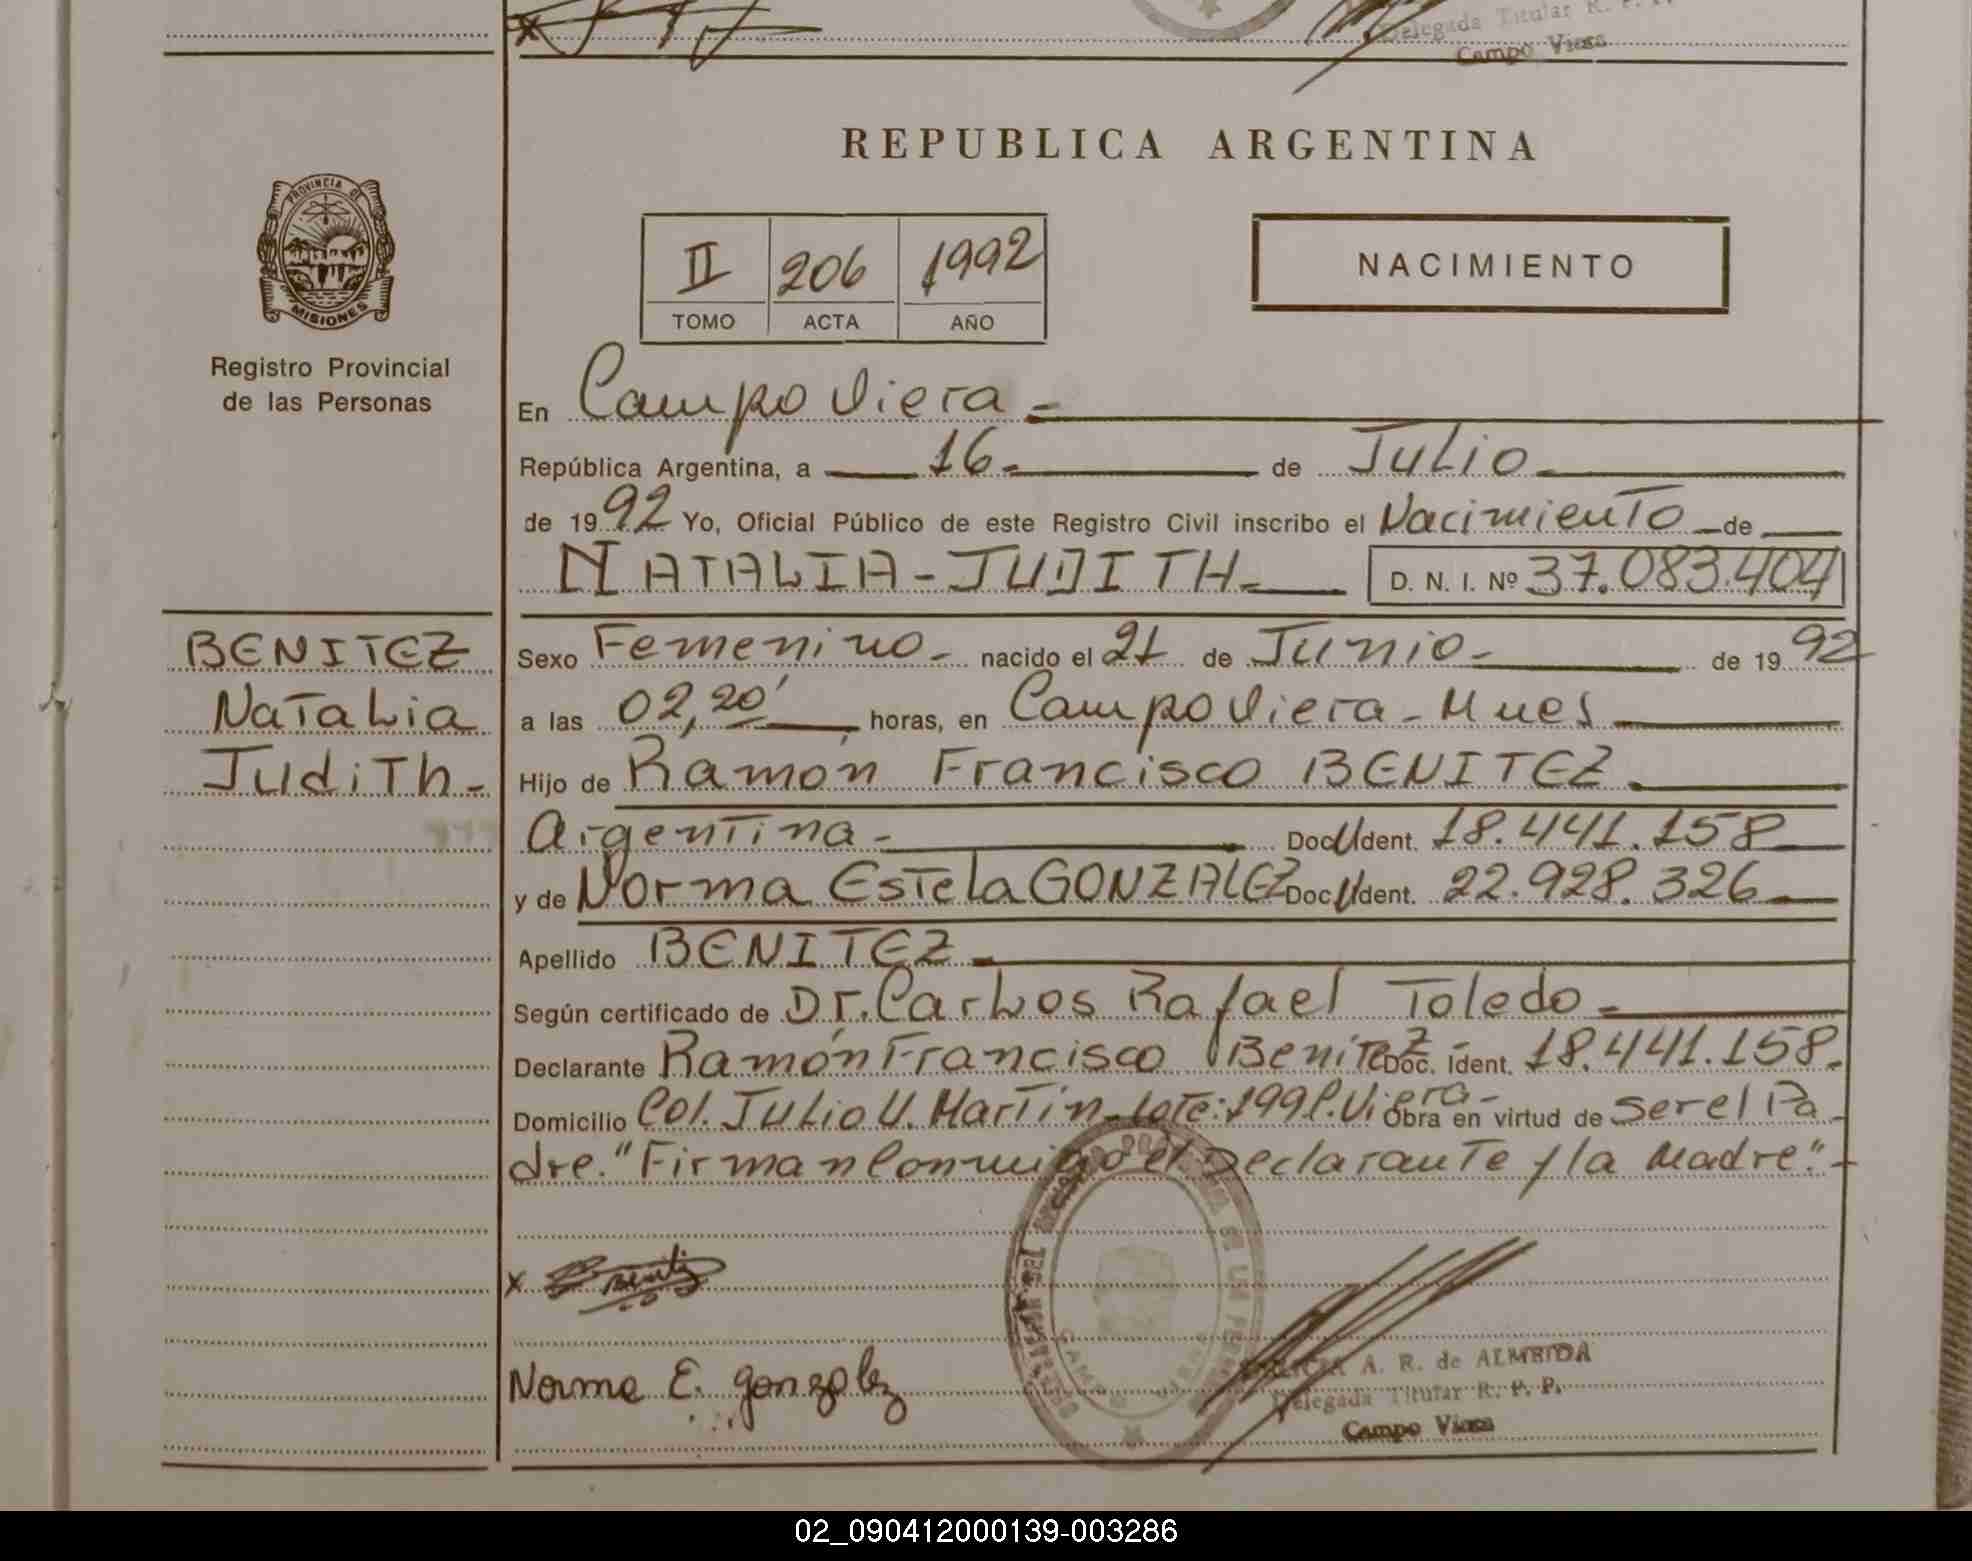 Delegada Titular R. P. P.
Campo Viera
REPUBLICA ARGENTINA
PROVINCIA DE
MISIONES
Registro Provincial
de las Personas
II 206 1992
TOMO ACTA AÑO
NACIMIENTO
En Campo Viera -
República Argentina, a 16 - de Julio -
de 1992 Yo, Oficial Público de este Registro Civil inscribo el Nacimiento - de
NATALIA - JUDITH - D. N. I. Nº 37.083.404
BENITEZ
Natalia
Judith -
Sexo Femenino - nacido el 21 de Junio - de 1992
a las 02,20' horas, en Campo Viera - Mnes
Hijo de Ramón Francisco BENITEZ -
Argentina - Doc. Ident. 18.441.158
y de Norma Estela GONZALEZ Doc. Ident. 22.928.326
Apellido BENITEZ -
Según certificado de Dr. Carlos Rafael Toledo -
Declarante Ramón Francisco Benitez Doc. Ident. 18.441.158.
Domicilio Col. Julio U. Martin - Lote: 199 C. Viera - Obra en virtud de ser el Pa-
dre. "Firman Conmigo el Declarante y la Madre." -
x Benitez
Norma E. gonzalez
A. R. de ALMEIDA
Delegada Titular R. P. P.
Campo Viera
02_090412000139-003286